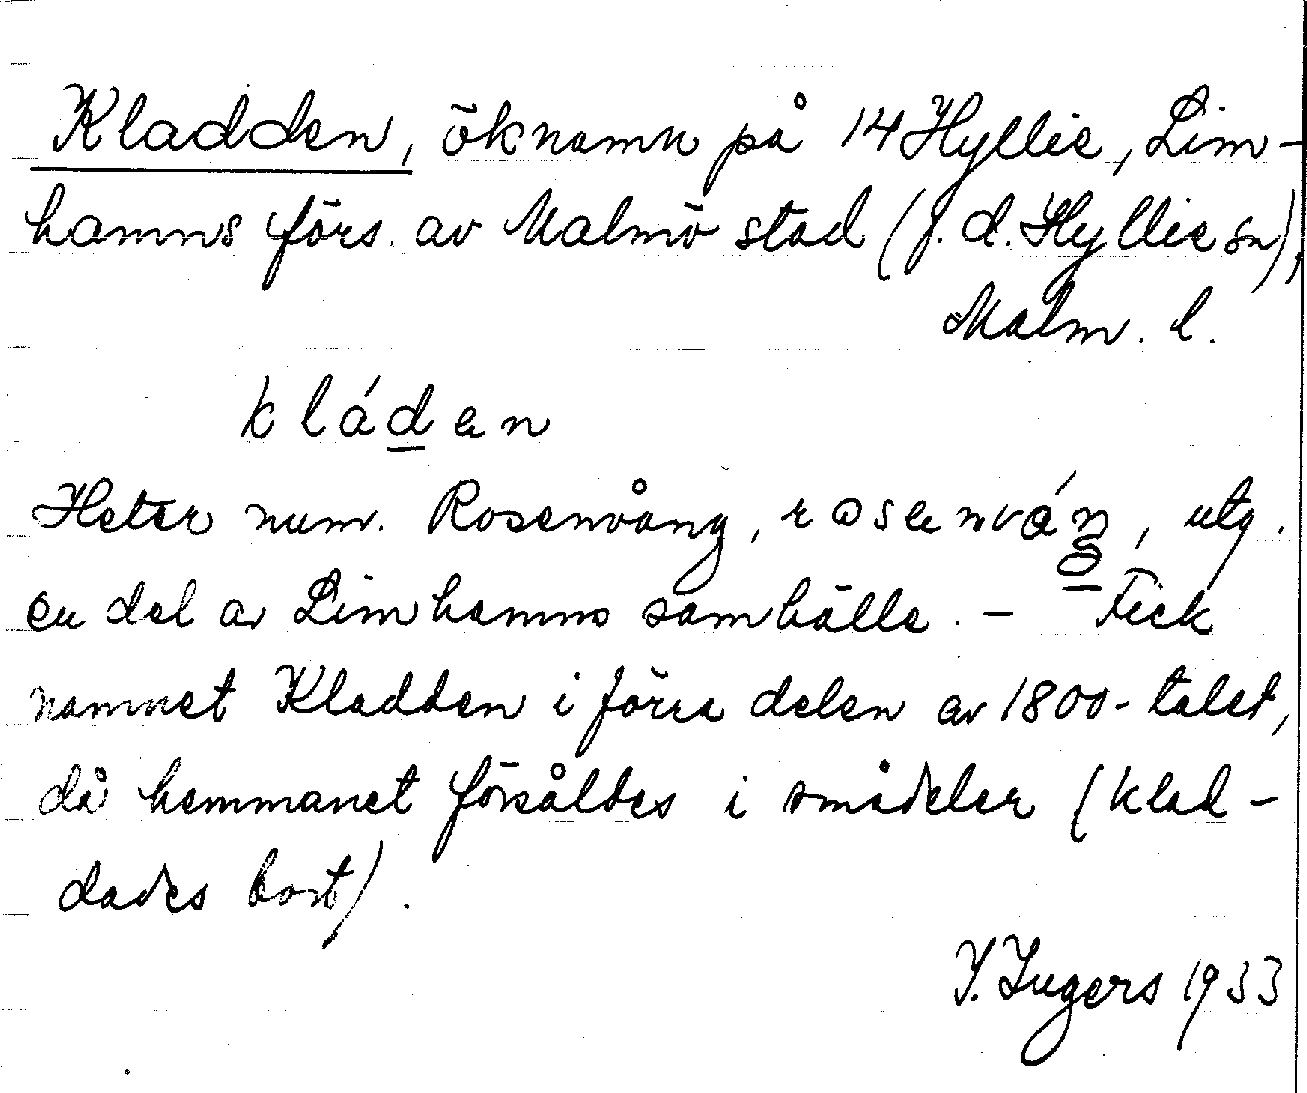 Kladden, öknamn på 14 Hyllie, Lim-
hamns förs. av Malmö stad (f. d. Hyllie sn),
Malm. l.
kláden
Heter num. Rosenvång, rosenváŋ, utg.
en del av Limhamns samhälle. – Fick
namnet Kladden i förra delen av 1800-talet,
då hemmanet försåldes i smådelar (klad-
dades bort).
I. Ingers 1933